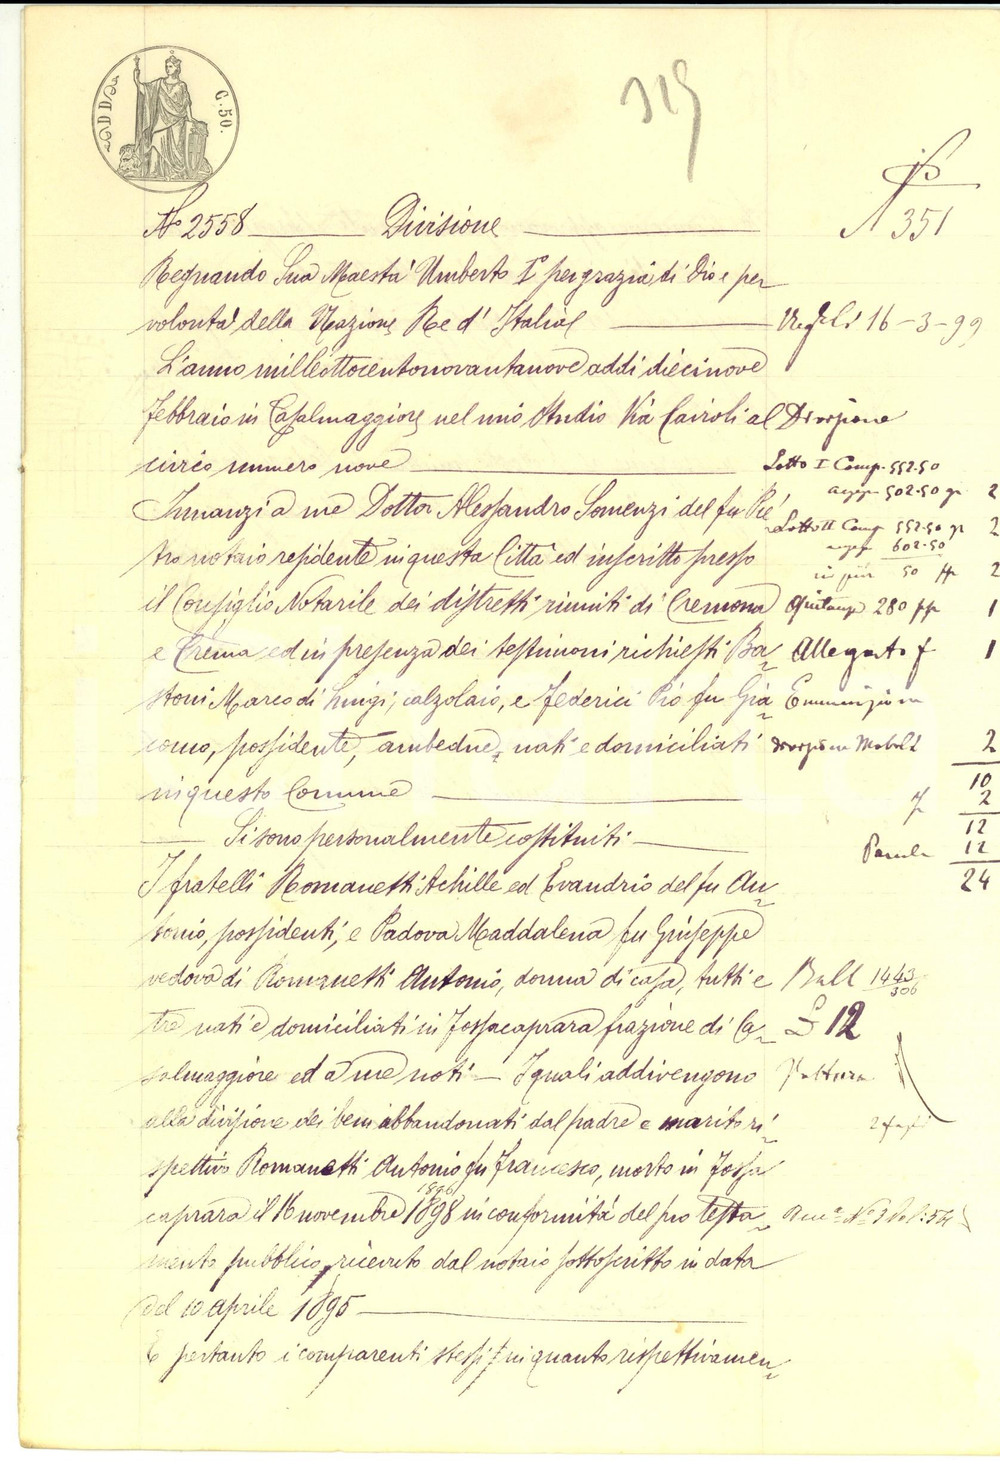 C. 50.
315
N° 2558 Divisione
N 351
Regnando Sua Maestà Umberto I° per grazia di Dio e per
volontà della Nazione Re d'Italia
16-3-99
L'anno milleottocentonovantanove addì diecinove
febbraio in Casalmaggiore nel mio studio Via Cairoli al
Divisione
civico numero nove
Lotto I Comp. 552.50
502.50
2
Innanzi a me Dottor Alessandro Somenzi del fu Pie
Lotto II Comp 552.50
2
602.50
tro notaio residente in questa Città ed inscritto presso
in più 50
2
il Consiglio Notarile dei distretti riuniti di Cremona
Quitanza 280
1
e Crema ed in presenza dei testimoni richiesti Ba-
Allegato f
1
stoni Marco di Luigi, calzolaio, e Federici Pio fu Gia-
como, possidente, ambedue nati e domiciliati
divisione Mobili
2
in questo Comune
10
2
12
Si sono personalmente costituiti
12
24
I fratelli Romanetti Achille ed Evandrio del fu An-
tonio, possidenti, e Padova Maddalena fu Giuseppe
vedova di Romanetti Antonio, donna di casa, tutti e
Boll 1443
306
tre nati e domiciliati in Fossacaprara frazione di Ca-
£ 12
salmaggiore ed a me noti — I quali addivengono
alla divisione dei beni abbandonati dal padre e marito ri-
spettivo Romanetti Antonio fu Francesco, morto in Fossa
1896
caprara il 16 novembre 1898 in conformità del suo testa-
mento pubblico ricevuto dal notaio sottoscritto in data
del 10 aprile 1895
E pertanto i comparenti stessi in quanto rispettivamen-